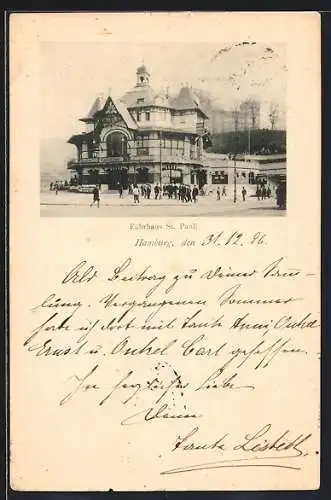 Fährhaus St. Pauli
Hamburg, den 31.12.96.
Als Beitrag zu Deiner Samm-
lung. Vergangenen Sommer
habe ich dort mit Tante Anni Onkel
Ernst u. Onkel Carl gesessen.
In herzlicher Liebe
Deine
Tante Lisbeth.